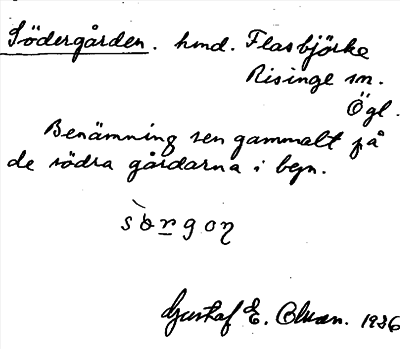 Södergården. hmd. Flasbjörke
Risinge sn.
Ögl.
Benämning sen gammalt på
de södra gårdarna i byn.
Gustaf E. Olsson. 1936